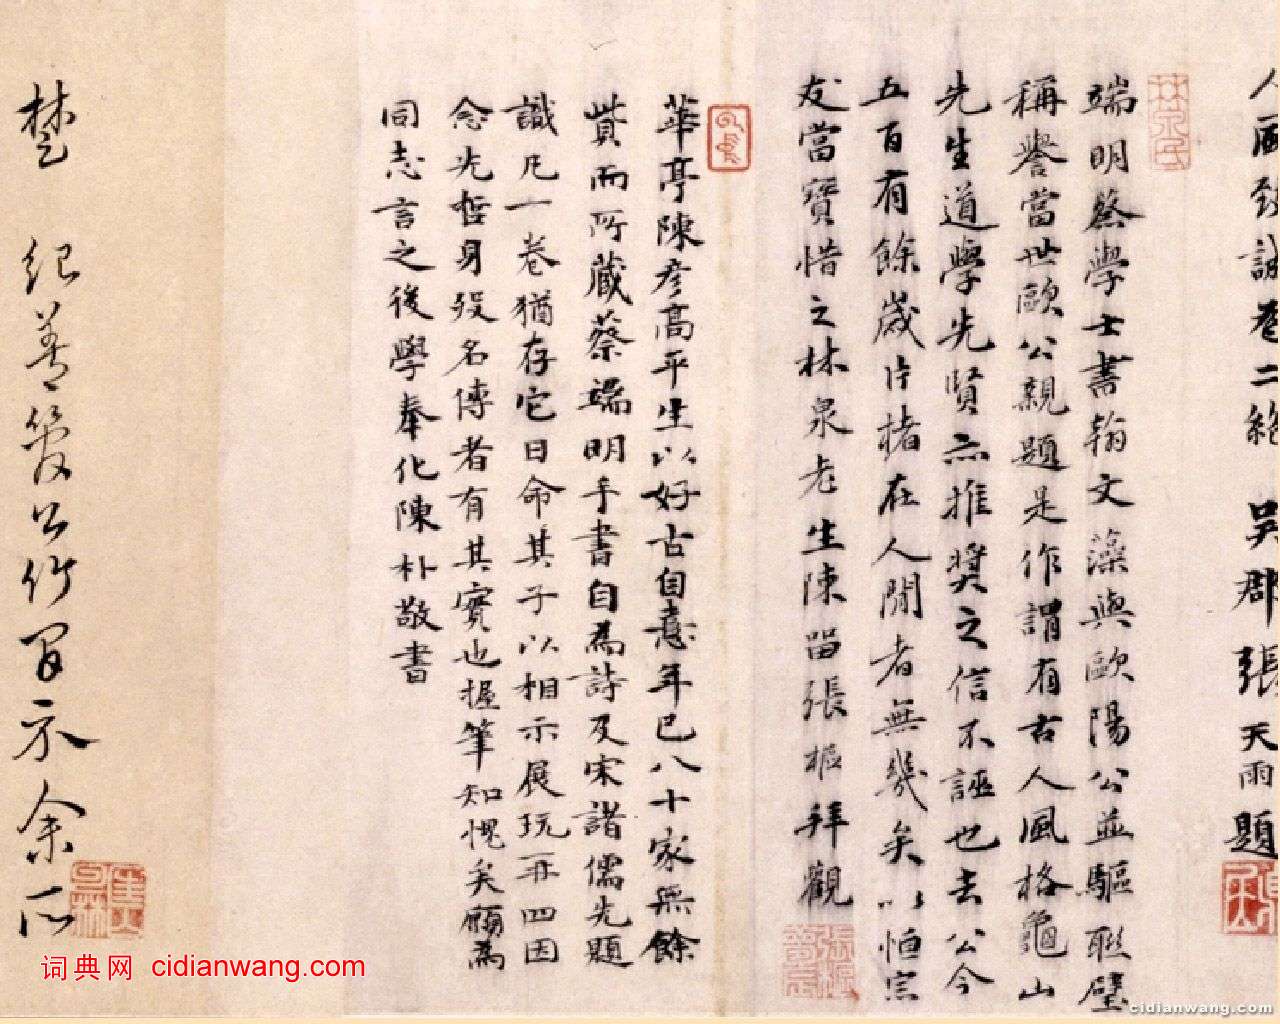 人風致誠卷二絕 吳郡張天雨題
端明蔡學士書翰文藻與歐陽公並驅聯璧
稱譽當世歐公親題是作謂有古人風格龜山
先生道學先賢亦推奬之信不誣也去公今
五百有餘歲片楮在人間者無幾矣以恒宗
友當寶惜之林泉老生陳留張樞拜觀
華亭陳彥高平生以好古自憙年已八十家無餘
貲而所藏蔡端明手書自為詩及宋諸儒先題
識凡一卷猶存它日命其子以相示展玩再四因
念先哲身歿名傳者有其實也握筆知愧矣願為
同志言之後學奉化陳朴敬書
楚 紀善管公竹間示余所
詞典网 cidianwang.com
cidianwang.com